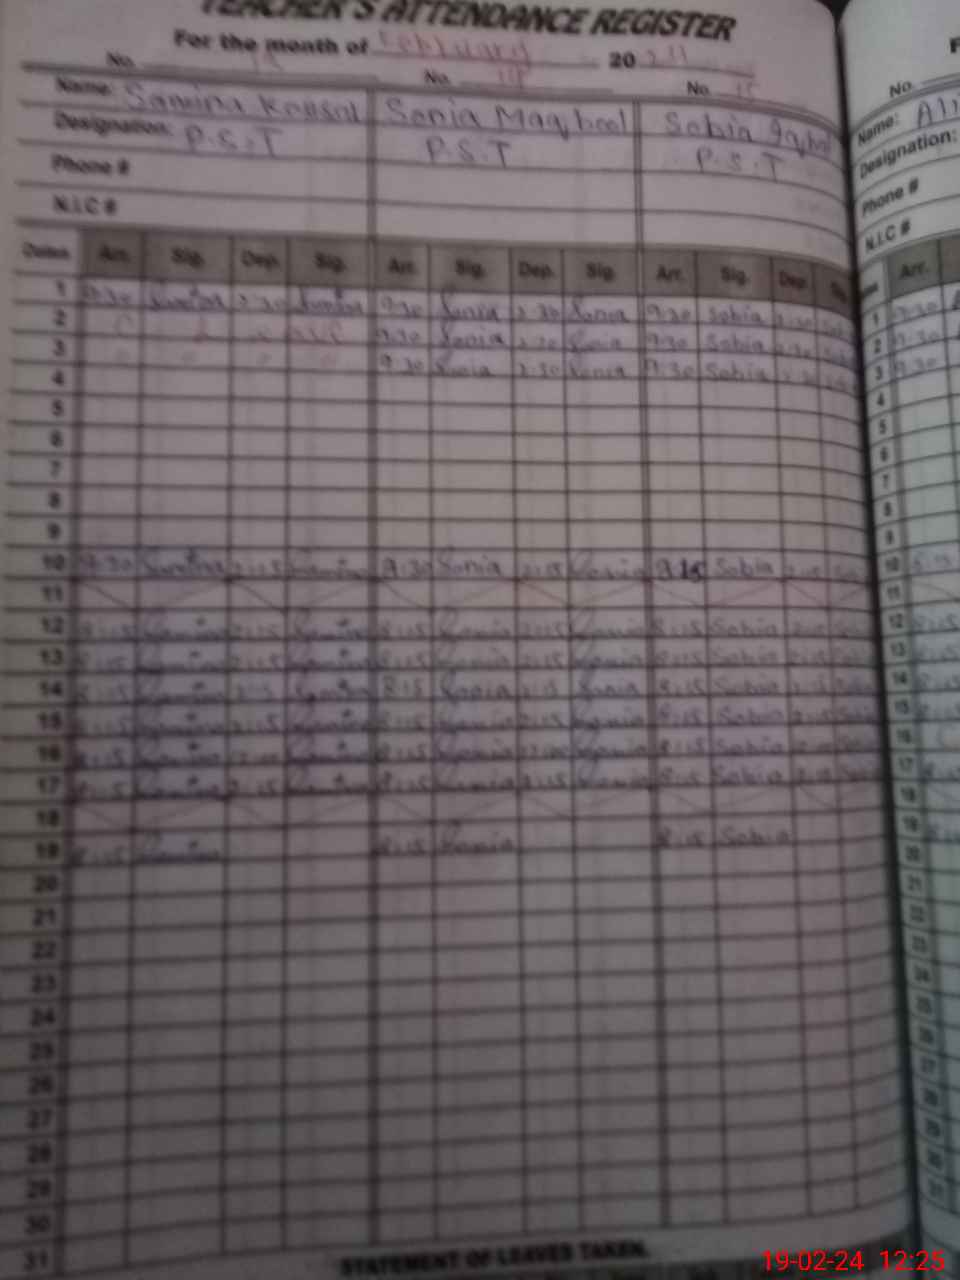 TEACHER'S ATTENDANCE REGISTER
For the month of February 20 24
No. No. 14 No. 15
Name: Samina Kousal Sonia Maqbool Sobia Iqbal
Designation: P.S.T P.S.T P.S.T
Phone #
N.I.C #
Dates Arr. Sig. Dep. Sig. Arr. Sig. Dep. Sig. Arr. Sig. Dep. Sig.
1 9:30 Samina 2:30 Samina 9:30 Sonia 2:30 Sonia 9:30 Sobia 2:30
2 9:30 Sonia 2:30 Sonia 9:30 Sobia 2:30
3 9:30 Sonia 2:30 Sonia 9:30 Sobia 2:30
4
5
6
7
8
9
10 9:30 Samina 2:15 Samina 9:30 Sonia 2:15 Sonia 9:15 Sobia 2:15
11
12 8:15 Samina 2:15 Samina 8:15 Sonia 2:15 Sonia 8:15 Sobia 2:15
13 8:15 Samina 2:15 Samina 8:15 Sonia 2:15 Sonia 8:15 Sobia 2:15
14 8:15 Samina 2:15 Samina 8:15 Sonia 2:15 Sonia 8:15 Sobia 2:15
15 8:15 Samina 2:15 Samina 8:15 Sonia 2:15 Sonia 8:15 Sobia 2:15
16 8:15 Samina Samina 8:15 Sonia 12:00 Sonia 8:15 Sobia
17 8:15 Samina 2:15 Samina 8:15 Sonia 2:15 Sonia 8:15 Sobia 2:15
18
19 8:15 Samina 8:15 Sonia 8:15 Sobia
20
21
22
23
24
25
26
27
28
29
30
31
STATEMENT OF LEAVES TAKEN.
No.
Name: Ali
Designation:
Phone #
N.I.C #
Arr.
1 9:30
2 9:30
3 9:30
4
5
6
7
8
9
10
11
12 8:15
13 8:15
14 8:15
15 8:15
16
17
18
19
20
21
22
23
24
25
26
27
28
29
30
31
19-02-24 12:25